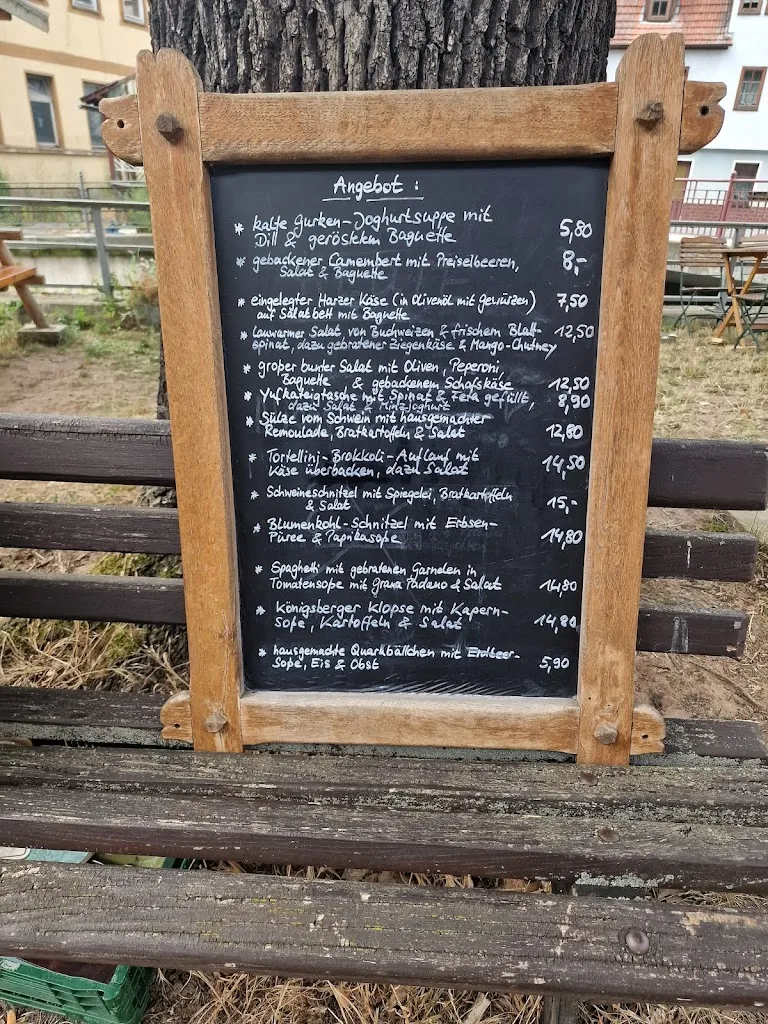 Angebot :
* kalte Gurken-Joghurtsuppe mit
Dill & geröstetem Baguette 5,80
* gebackener Camembert mit Preiselbeeren,
Salat & Baguette 8,-
* eingelegter Harzer Käse (in Olivenöl mit Gewürzen)
auf Salatbett mit Baguette 7,50
* Lauwarmer Salat von Buchweizen & frischem Blatt-
spinat, dazu gebratener Ziegenkäse & Mango-Chutney 12,50
* großer bunter Salat mit Oliven, Peperoni,
Baguette & gebackenem Schafskäse 12,50
* Yufkateigtasche mit Spinat & Feta gefüllt,
dazu Salat & Minzjoghurt 8,90
* Sülze vom Schwein mit hausgemachter
Remoulade, Bratkartoffeln & Salat 12,80
* Tortellini-Brokkoli-Auflauf mit
Käse überbacken, dazu Salat 14,50
* Schweineschnitzel mit Spiegelei, Bratkartoffeln
& Salat 15,-
* Blumenkohl-Schnitzel mit Erbsen-
Püree & Paprikasoße 14,80
* Spaghetti mit gebratenen Garnelen in
Tomatensoße mit Grana Padano & Salat 14,80
* Königsberger Klopse mit Kapern-
soße, Kartoffeln & Salat 14,80
* hausgemachte Quarkbällchen mit Erdbeer-
Soße, Eis & Obst 5,90